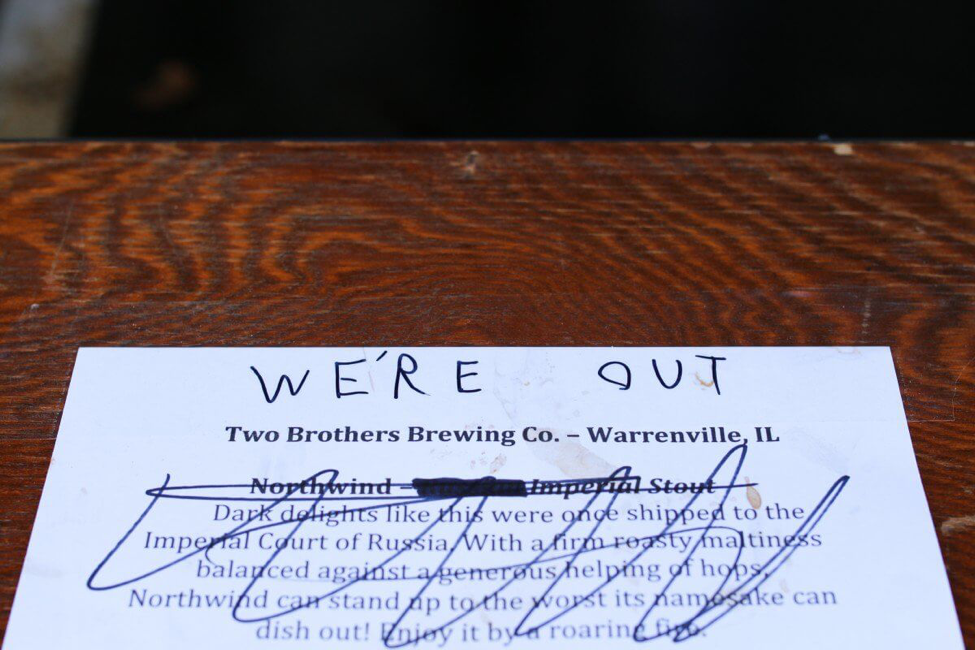 WE'RE OUT
Two Brothers Brewing Co. – Warrenville, IL
Northwind – Imperial Stout
Dark delights like this were once shipped to the
Imperial Court of Russia. With a firm roasty maltiness
balanced against a generous helping of hops,
Northwind can stand up to the worst its namesake can
dish out! Enjoy it by a roaring fire.